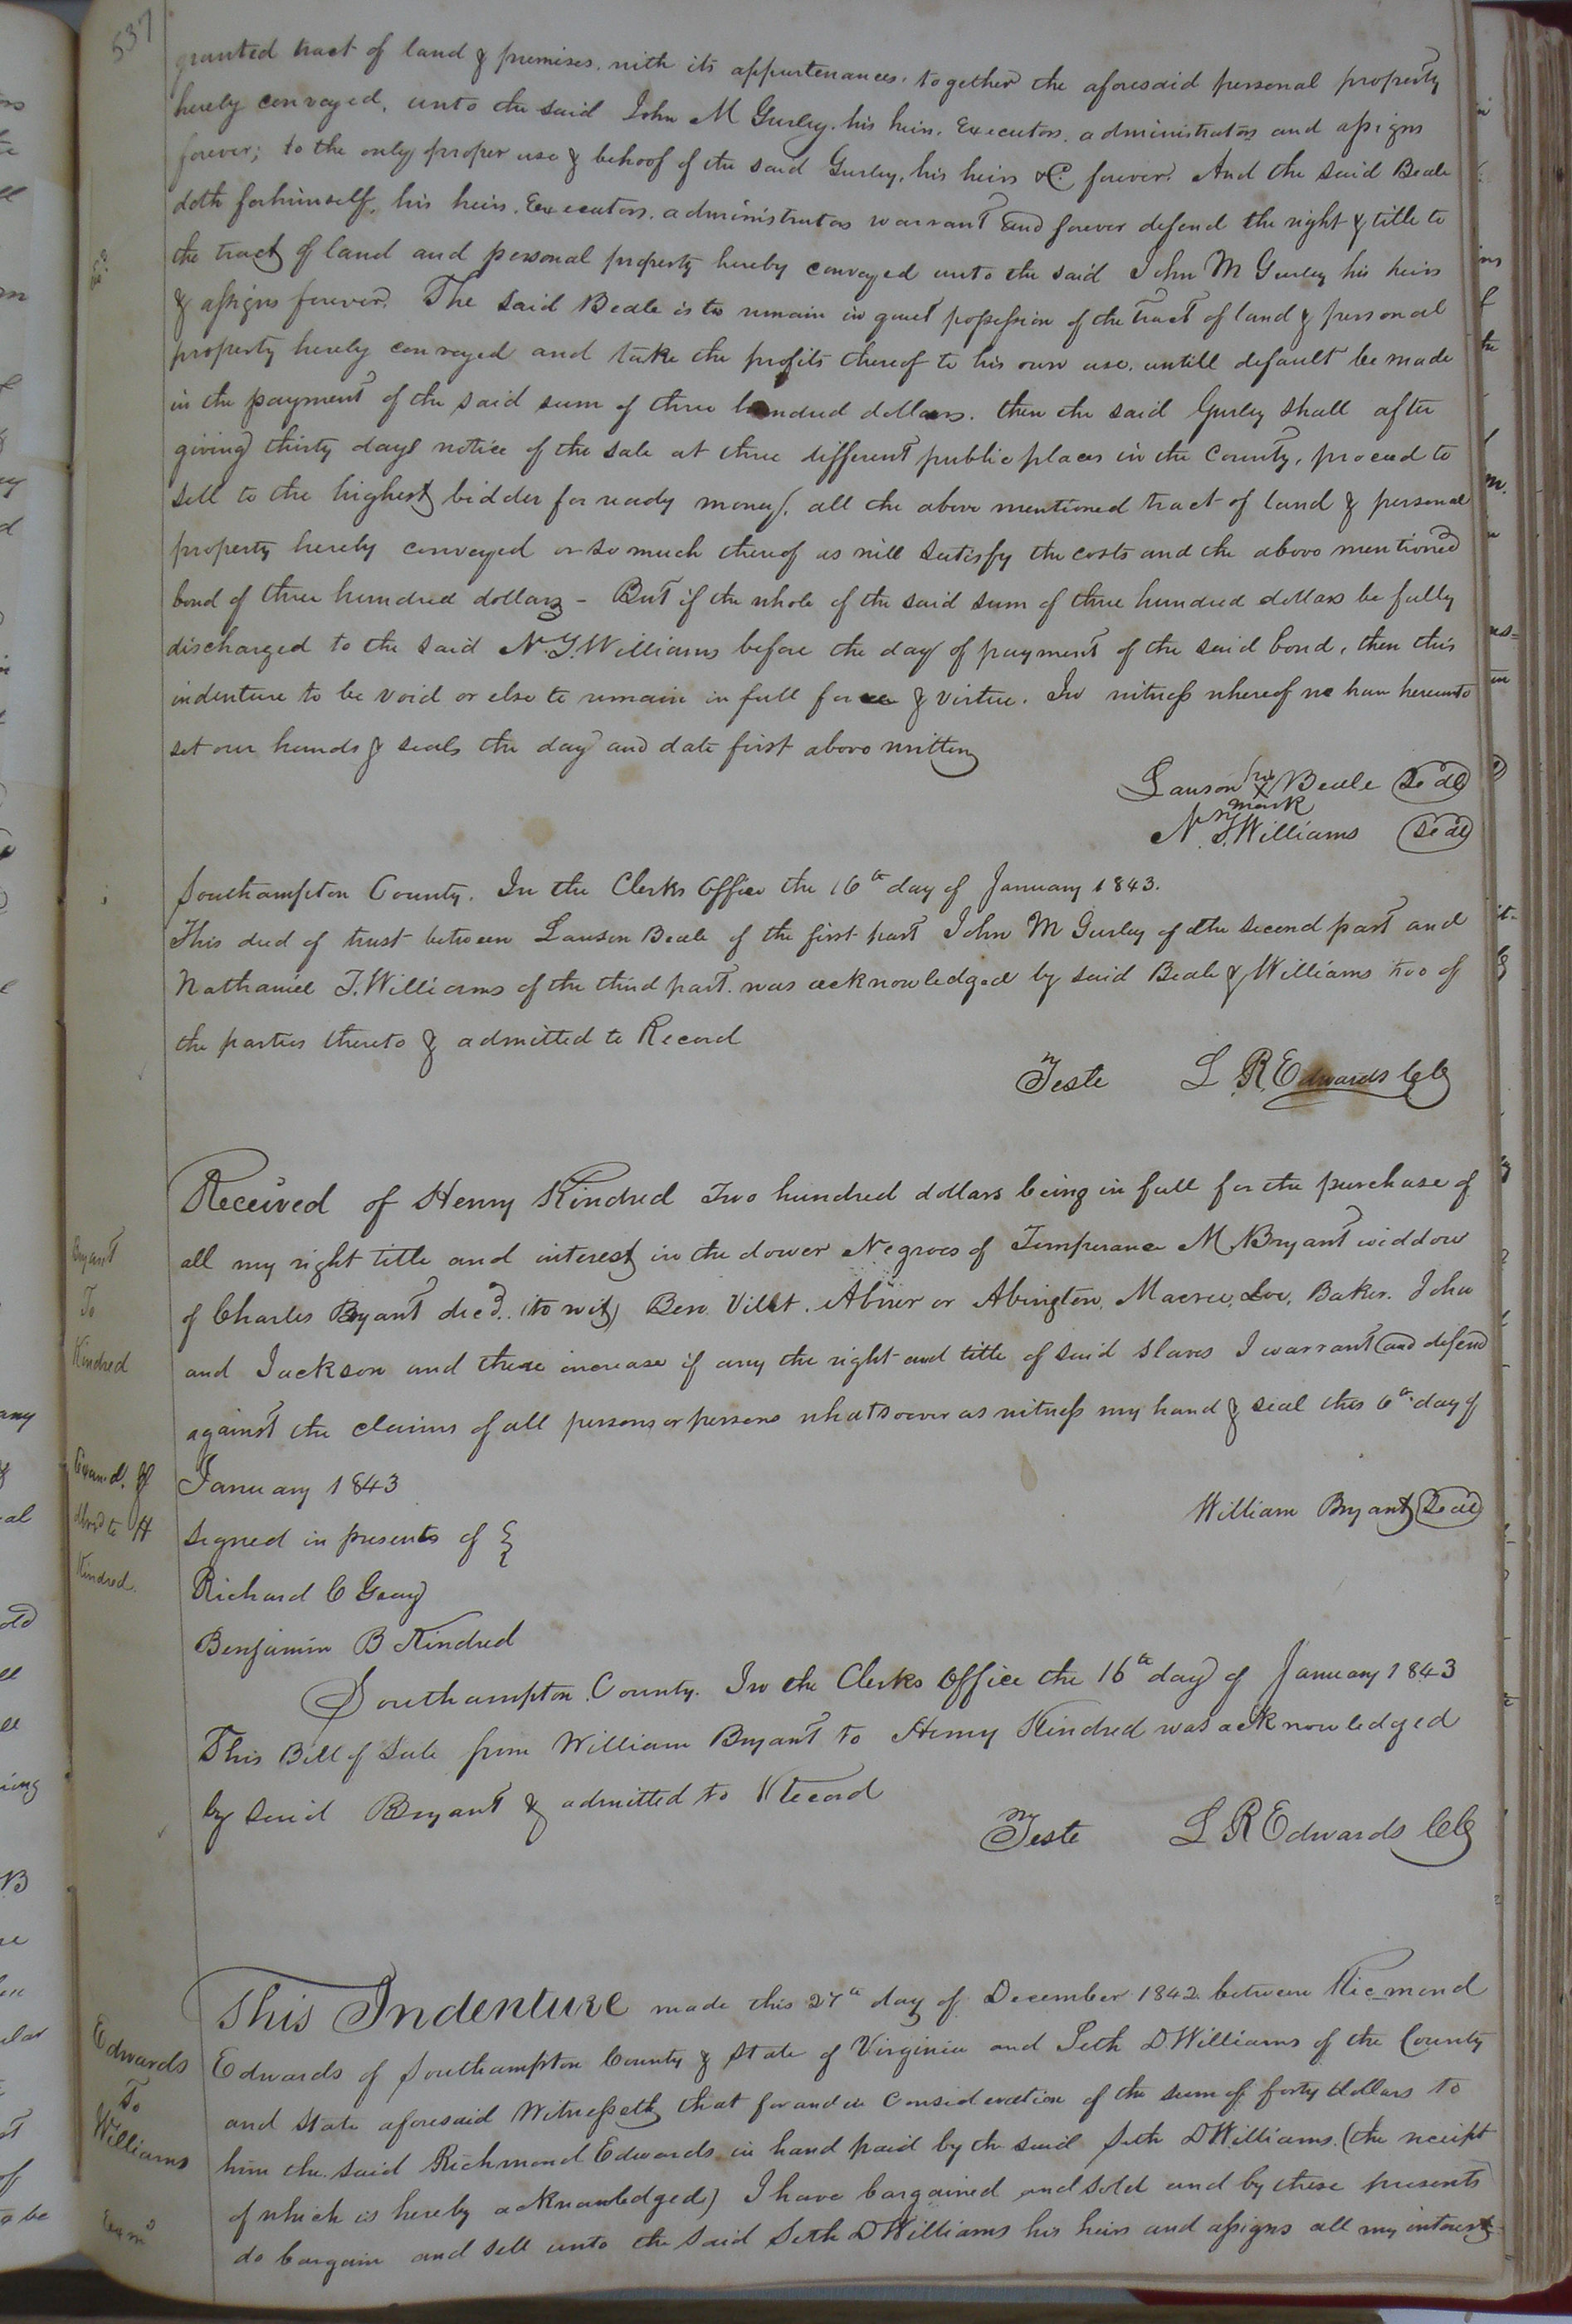 537
granted tract of land & premises, with its appurtenances, together the aforesaid personal property
hereby conveyed, unto the said John M Gurley, his heirs, Executors, administrators and assigns
forever; to the only proper use & behoof of the said Gurley, his heirs &C. forever. And the said Beale
doth for himself, his heirs, Executors, administrators warrant and forever defend the right & title to
the tract of land and personal property hereby conveyed unto the said John M Gurley his heirs
& assigns forever. The said Beale is to remain in quiet possession of the tract of land & personal
property hereby conveyed and take the profits thereof to his own use, untill default be made
in the payment of the said sum of three hundred dollars. then the said Gurley shall after
giving thirty days notice of the sale at three different public places in the County, proceed to
sell to the highest bidder for ready money, all the above mentioned tract of land & personal
property hereby conveyed or so much thereof as will satisfy the costs and the above mentioned
bond of three hundred dollars - But if the whole of the said sum of three hundred dollars be fully
discharged to the said N. T. Williams before the day of payment of the said bond, then this
indenture to be void or else to remain in full force & virtue. In witness whereof we have hereunto
set our hands & seals the day and date first above written
Lawson his X mark Beale Seal
N. T. Williams Seal
Southampton County. In the Clerks Office the 16th day of January 1843.
This deed of trust between Lawson Beale of the first part John M Gurley of the second part and
Nathaniel T. Williams of the third part was acknowledged by said Beale & Williams two of
the parties thereto & admitted to Record
Teste L R Edwards Clk
Bryant
To
Kindred
Received of Henry Kindred Two hundred dollars being in full for the purchase of
all my right title and interest in the dower Negroes of Temperance M Bryant widdow
of Charles Bryant dec'd. (to wit) Ben, Abner or Abington, Baker, John
and Jackson and there increase if any the right and title of said slaves I warrant and defend
against the claims of all persons or persons whatsoever as witness my hand & seal this 6th day of
January 1843
William Bryant Seal
Exam'd. &
to H
Kindred.
Signed in presents of
Richard C Gray
Benjamin B Kindred
Southampton County. In the Clerks Office the 16th day of January 1843
This Bill of Sale from William Bryant to Henry Kindred was acknowledged
by said Bryant & admitted to Record
Teste L R Edwards Clk
Edwards
To
Williams
Exmd
This Indenture made this 27th day of December 1842 between Richmond
Edwards of Southampton County & State of Virginia and Seth D Williams of the County
and State aforesaid Witnesseth that for and in Consideration of the sum of forty dollars to
him the said Richmond Edwards in hand paid by the said Seth D Williams (the receipt
of which is hereby acknowledged) I have bargained and sold and by these presents
do bargain and sell unto the said Seth D Williams his heirs and assigns all my interest